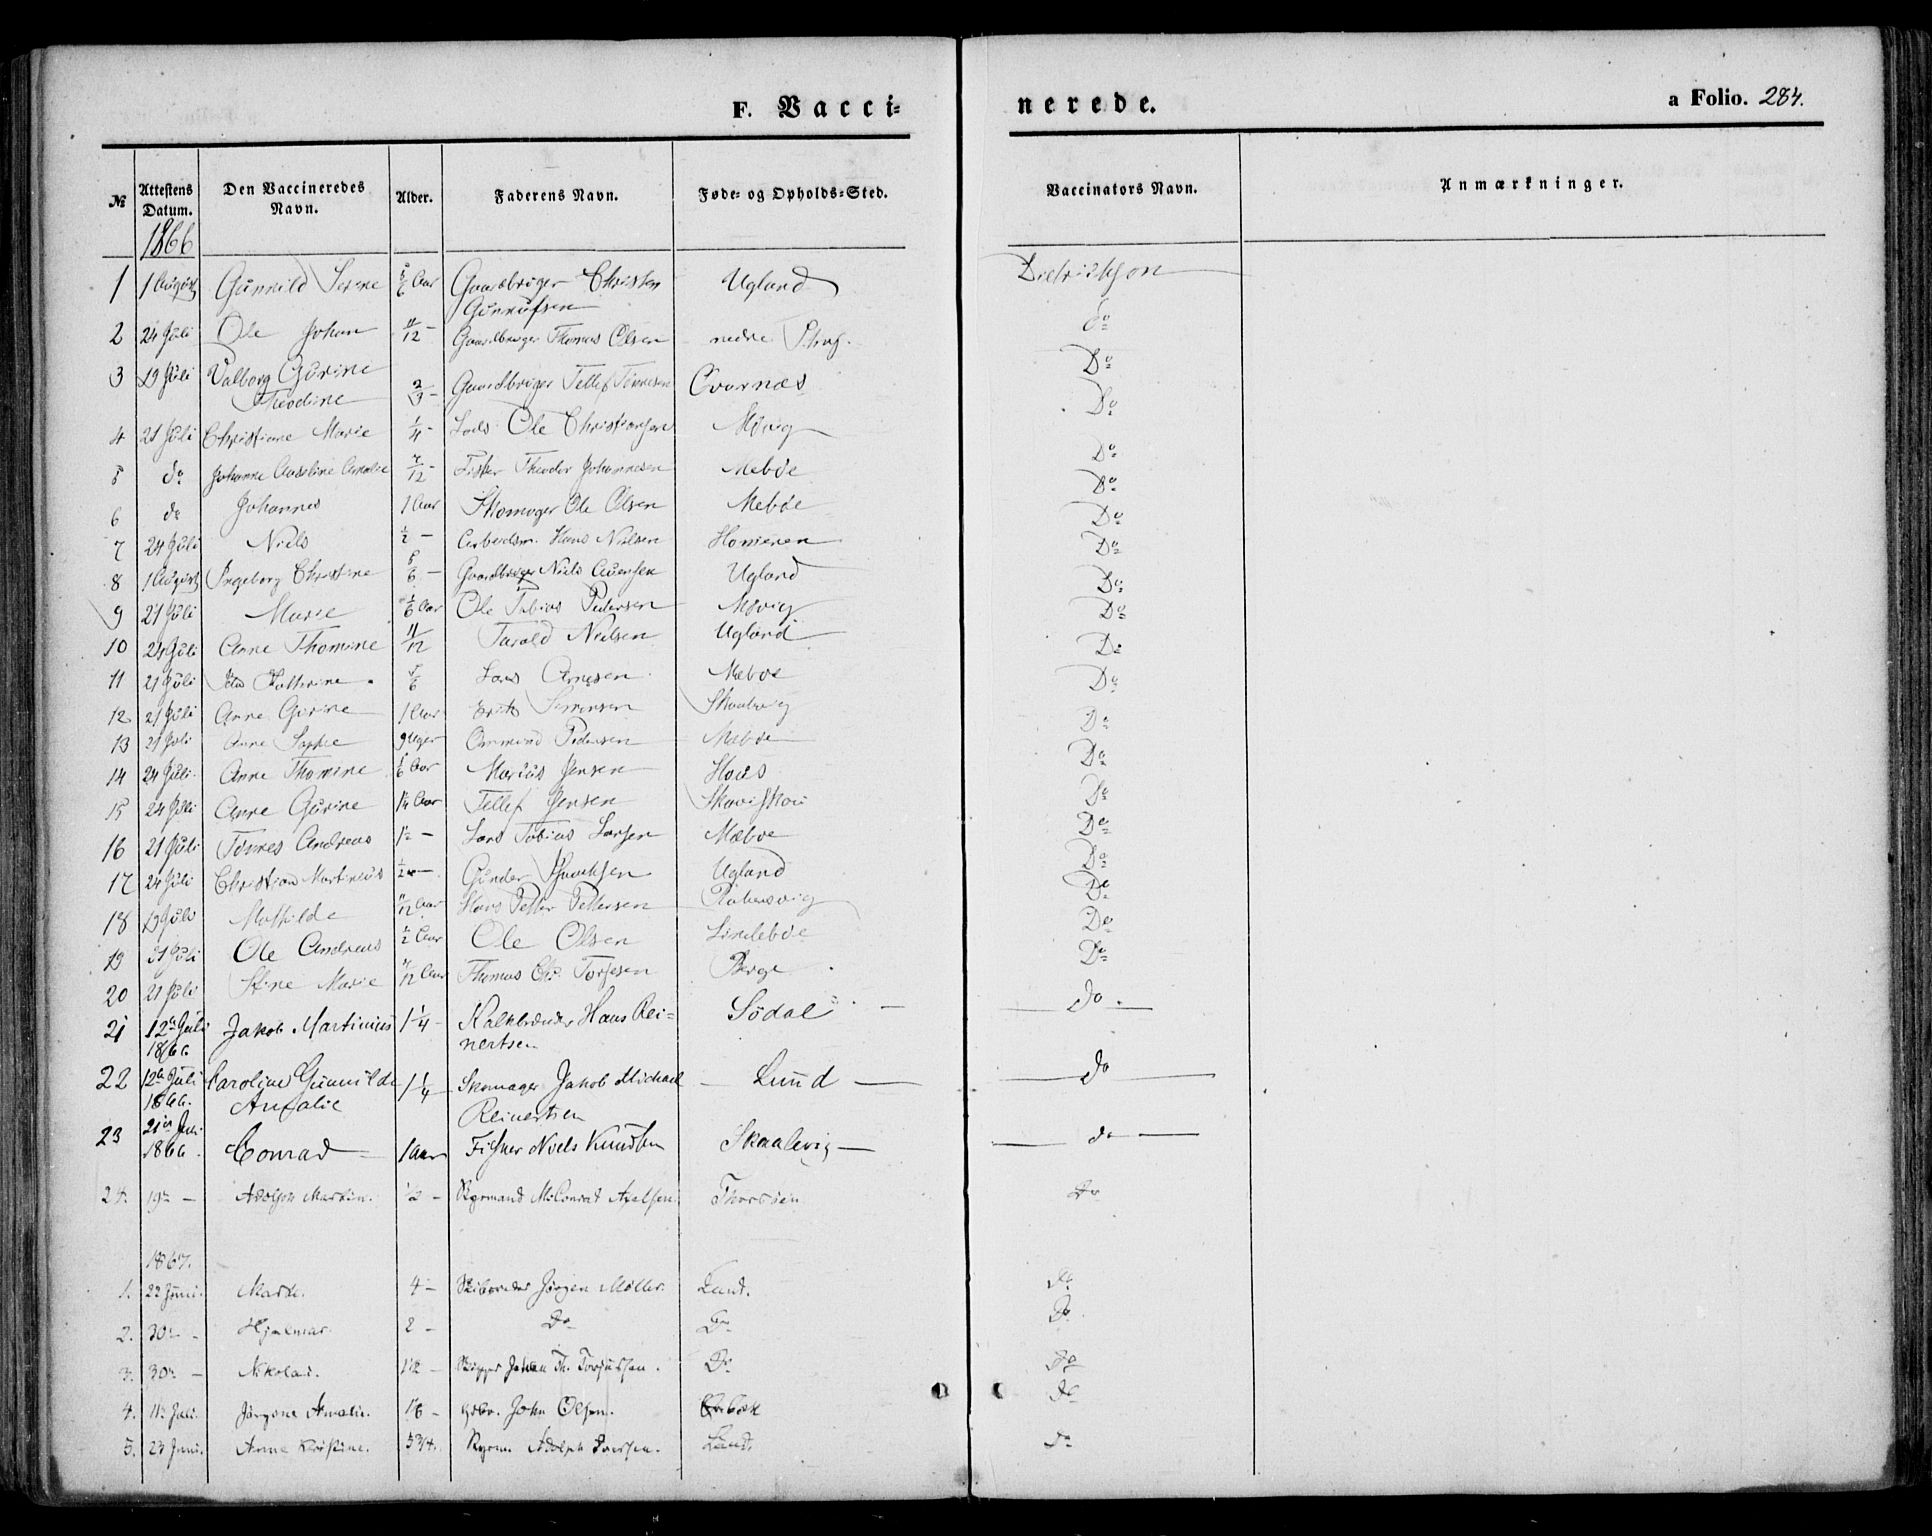 F. Vacci-
nerede.
a Folio. 284.
№ Attestens Datum. Den Vaccineredes Navn. Alder. Faderens Navn. Føde- og Opholds-Sted. Vaccinators Navn. Anmærkninger.
1866
1 1 August Gunnild Serine 5/6 Aar Gaardbruger Christen Ugland
Gunnufsen
2 24 Juli Ole Johan 11/12 - Gaardbruger Thomas Olsen nedre do
3 19 Juli Valborg Gurine Theodine 2/3 - Gaardbruger Tellef Tønnesen Do
4 21 Juli Christiane Marie 1/4 - Lods Ole Christiansen Møvig Do
5 do Johanne Amalie /12 - Fisker Theodor Johannesen Mebøe Do
6 do Johannes 1 Aar Skomager Ole Olsen Mebøe Do
7 24 Juli Niels 1/2 - Arbeidsm. Hans Nielsen Do
8 1 August Ingeborg Christine 5/6 - Gaardbruger Niels Ugland Do
9 21 Juli Marie /6 Aar Ole Tobias Pedersen Møvig Do
10 24 Juli Anne Thomine 11/12 Tarald Nielsen Ugland Do
11 21 Juli Kathrine 5/6 Lars Mæboe Do
12 21 Juli Anne Gurine 1 Aar Sørensen Do
13 21 Juli Anne Sophie 9 Uger Pedersen Mæboe Do
14 24 Juli Anne Thomine 5/6 Aar Marius Jensen Do
15 24 Juli Anne Gurine 1 1/4 Aar Tellef Jensen Do
16 21 Juli Tønnes Andreas 1 1/2 - Lars Tobias Larsen Mæboe Do
17 24 Juli Christian Martinius 1/2 - Gunder Ugland Do
18 19 Juli Mathilde 11/12 Aar Hans Petter Pettersen Do
19 21 Juli Ole Andreas 1/2 Aar Ole Olsen Lindebøe Do
20 21 Juli Stine Marie 11/12 Aar Thomas Chr. Torjesen Berge Do
21 12te Juli 1866 Jakob Martinius 1 1/4 - Kalkbrænder Hans Rei- Sødal do
nertsen
22 12te Juli 1866. Caroline Gunnilde 1 1/4 Skomager Jakob Michael Lund do
Amalie Reinertsen
23 21de Juli 1866. Conrad 1 Aar Fisker Niels Knudsen Skaalevig do
24. 19de - Adolph Martin. 1/2 - Styrmand M. Conrad Axelsen. Do
1867.
1. 22 Juni. 4 - Skibsreder Jørgen Møller. Lund. do
2. 30te - Hjalmar. 2 - Do Do Do
3. 30te - Nikolai. 1 1/2 - Skipper Johan Th. Torjussen. Do Do
4. 11te Juli. Jørgine Amalie. 1/6 - Gdbr. John Olsen. do
5. 23 Juni. Anne Kristine. 5 3/4. Styrm. Adolph Iversen. Lund. do